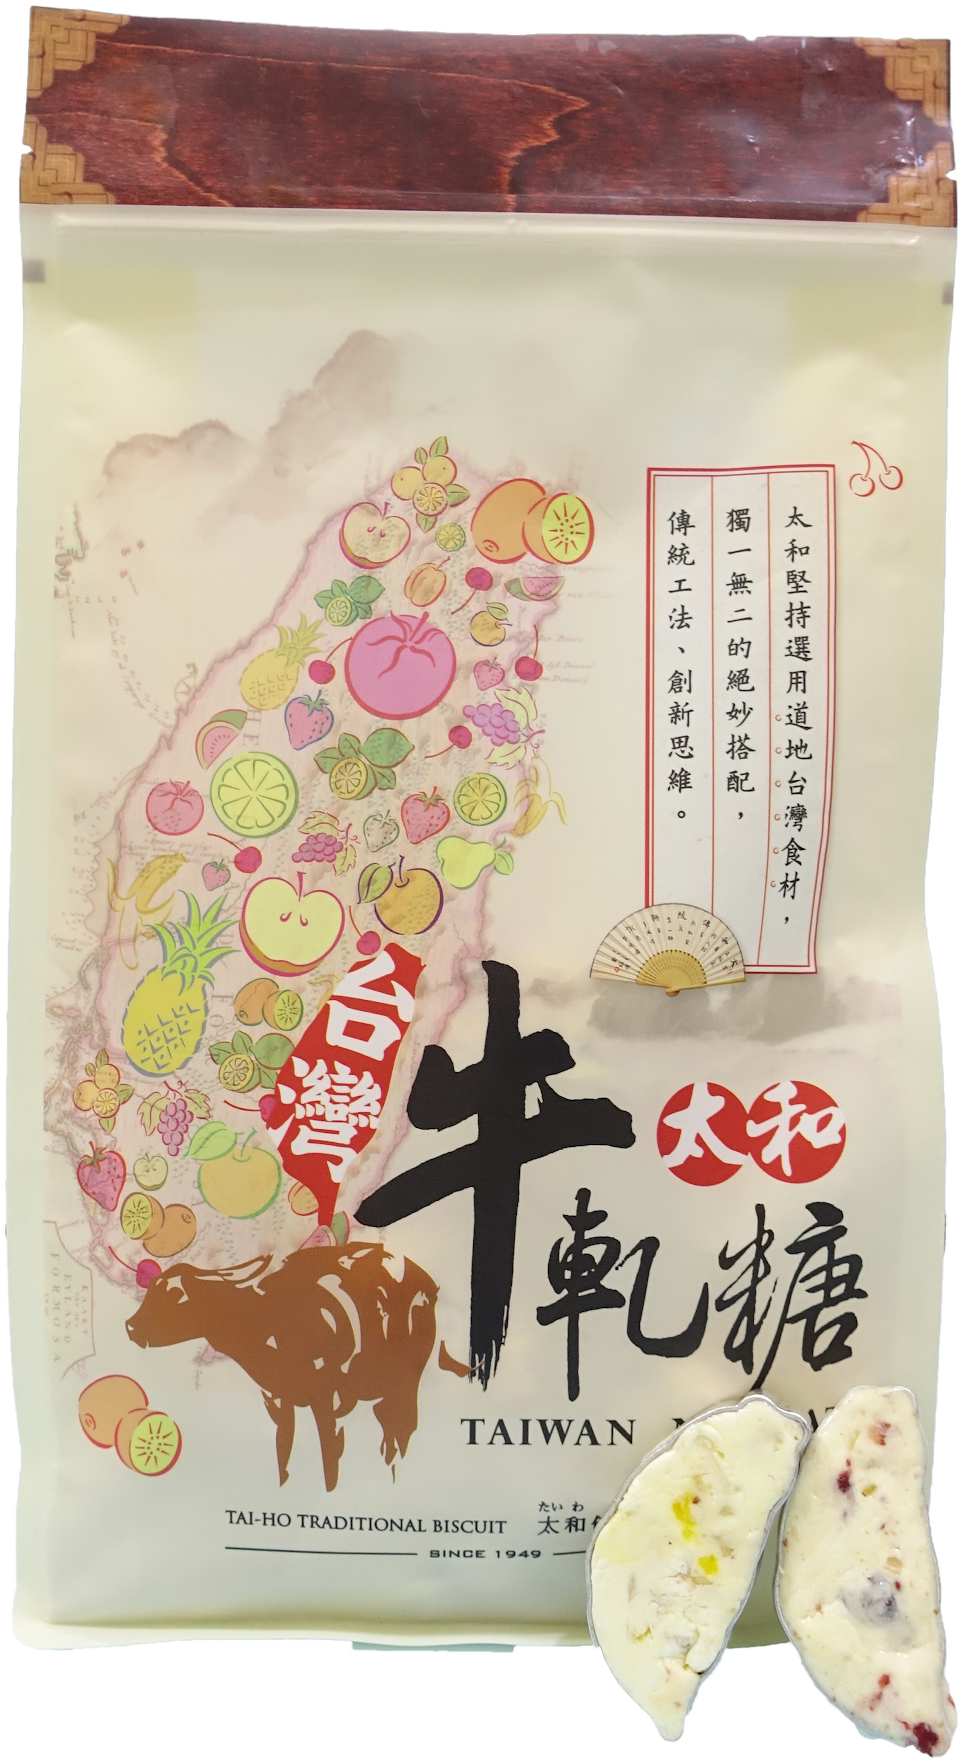 太和堅持選用道地台灣食材，
獨一無二的絕妙搭配，
傳統工法、創新思維。
台灣
牛軋糖
太和
TAIWAN
TAI-HO TRADITIONAL BISCUIT
たい わ
太和
SINCE 1949
FORMOSA